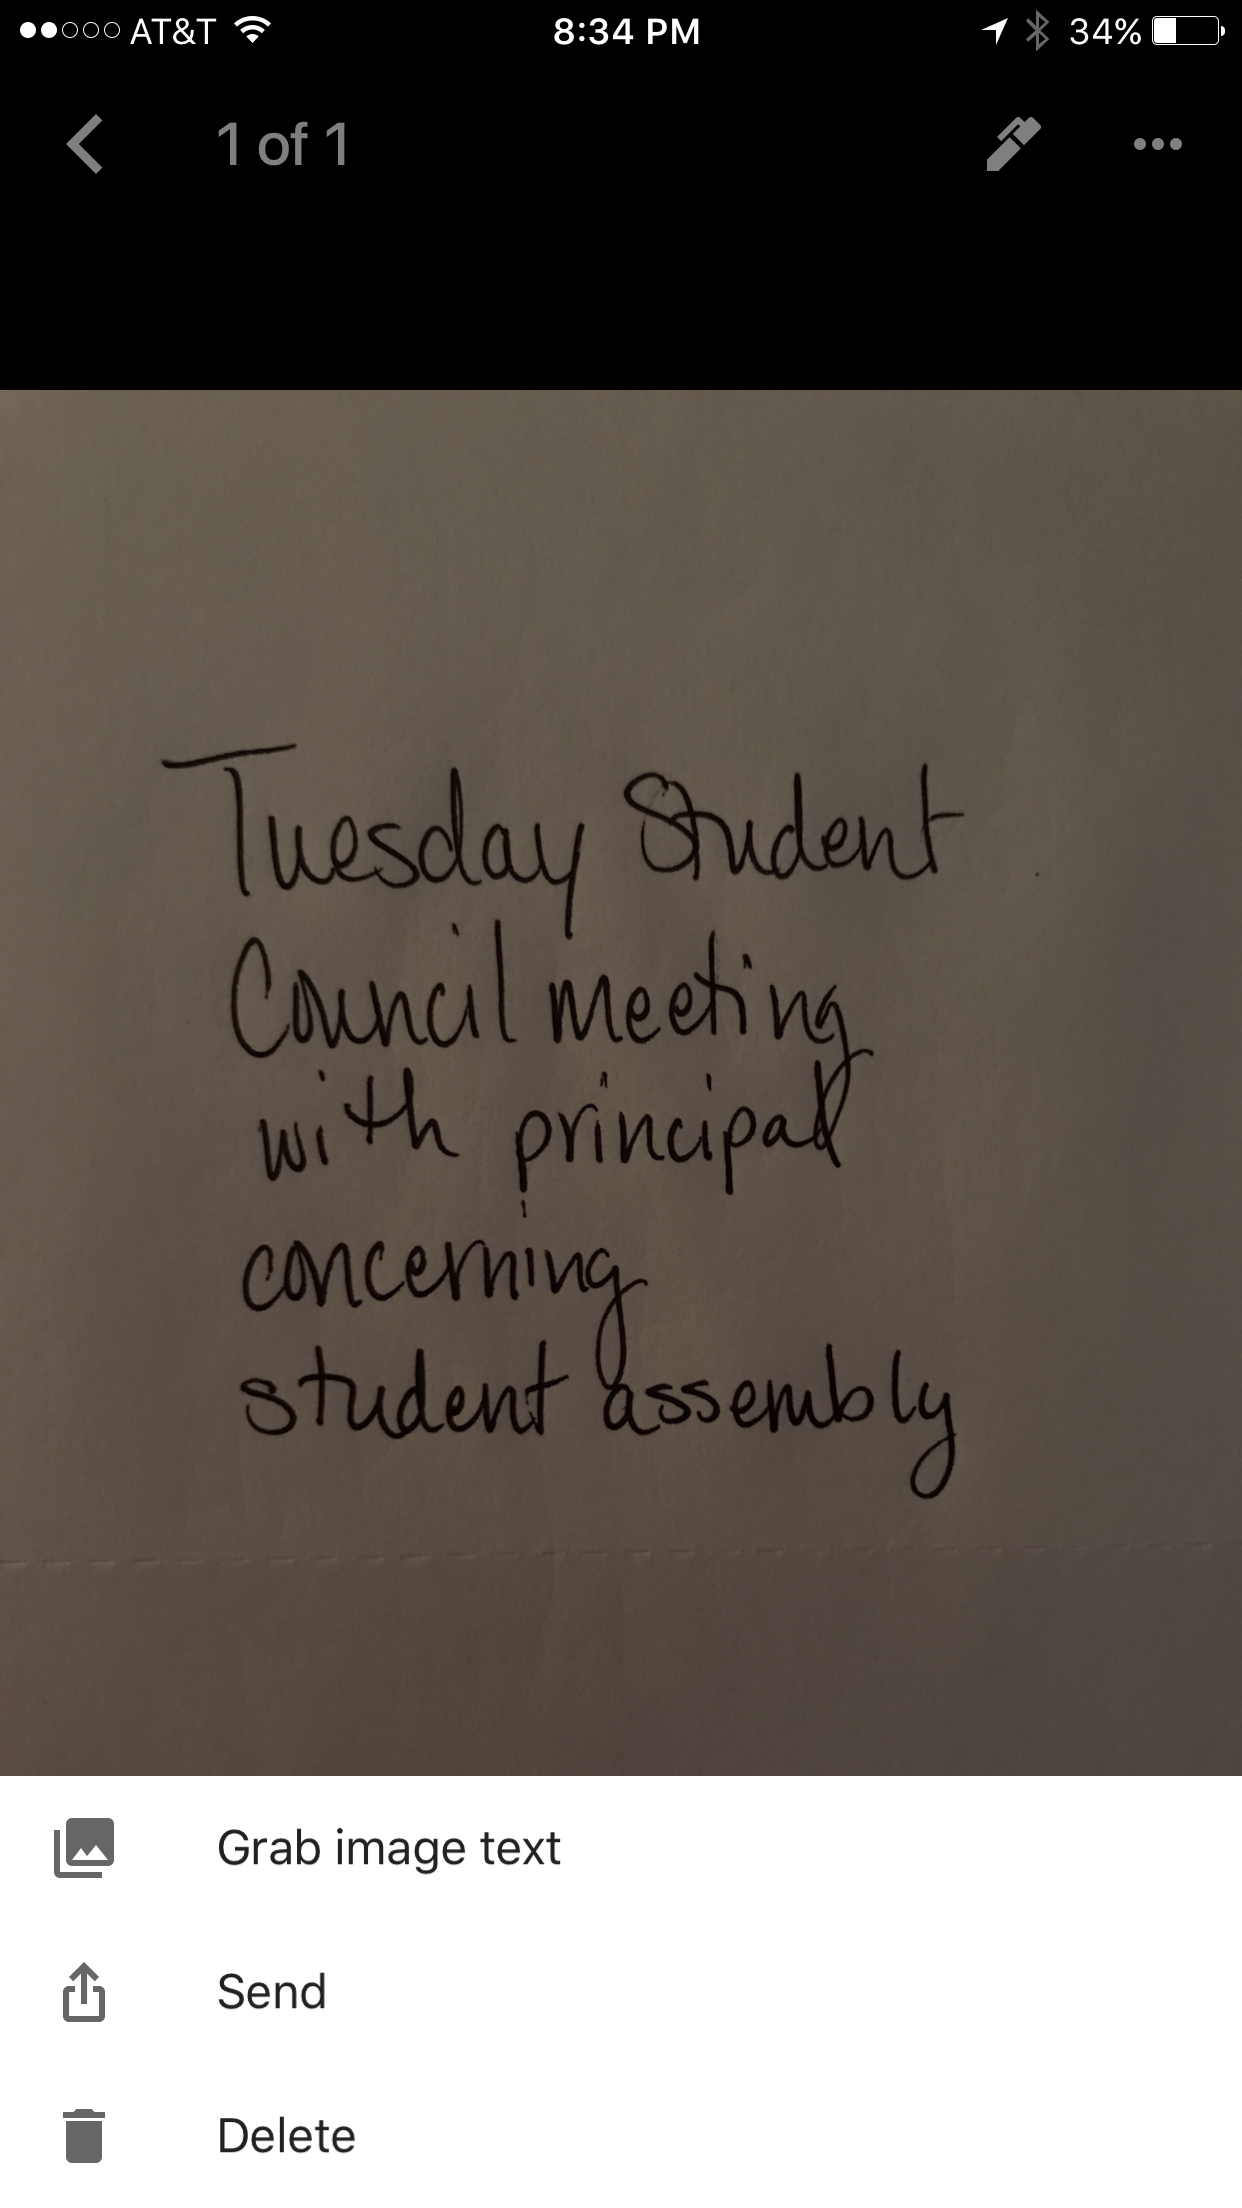 AT&T 8:34 PM 34%
1 of 1
Tuesday Student
Council meeting
with principal
concerning
student assembly
Grab image text
Send
Delete